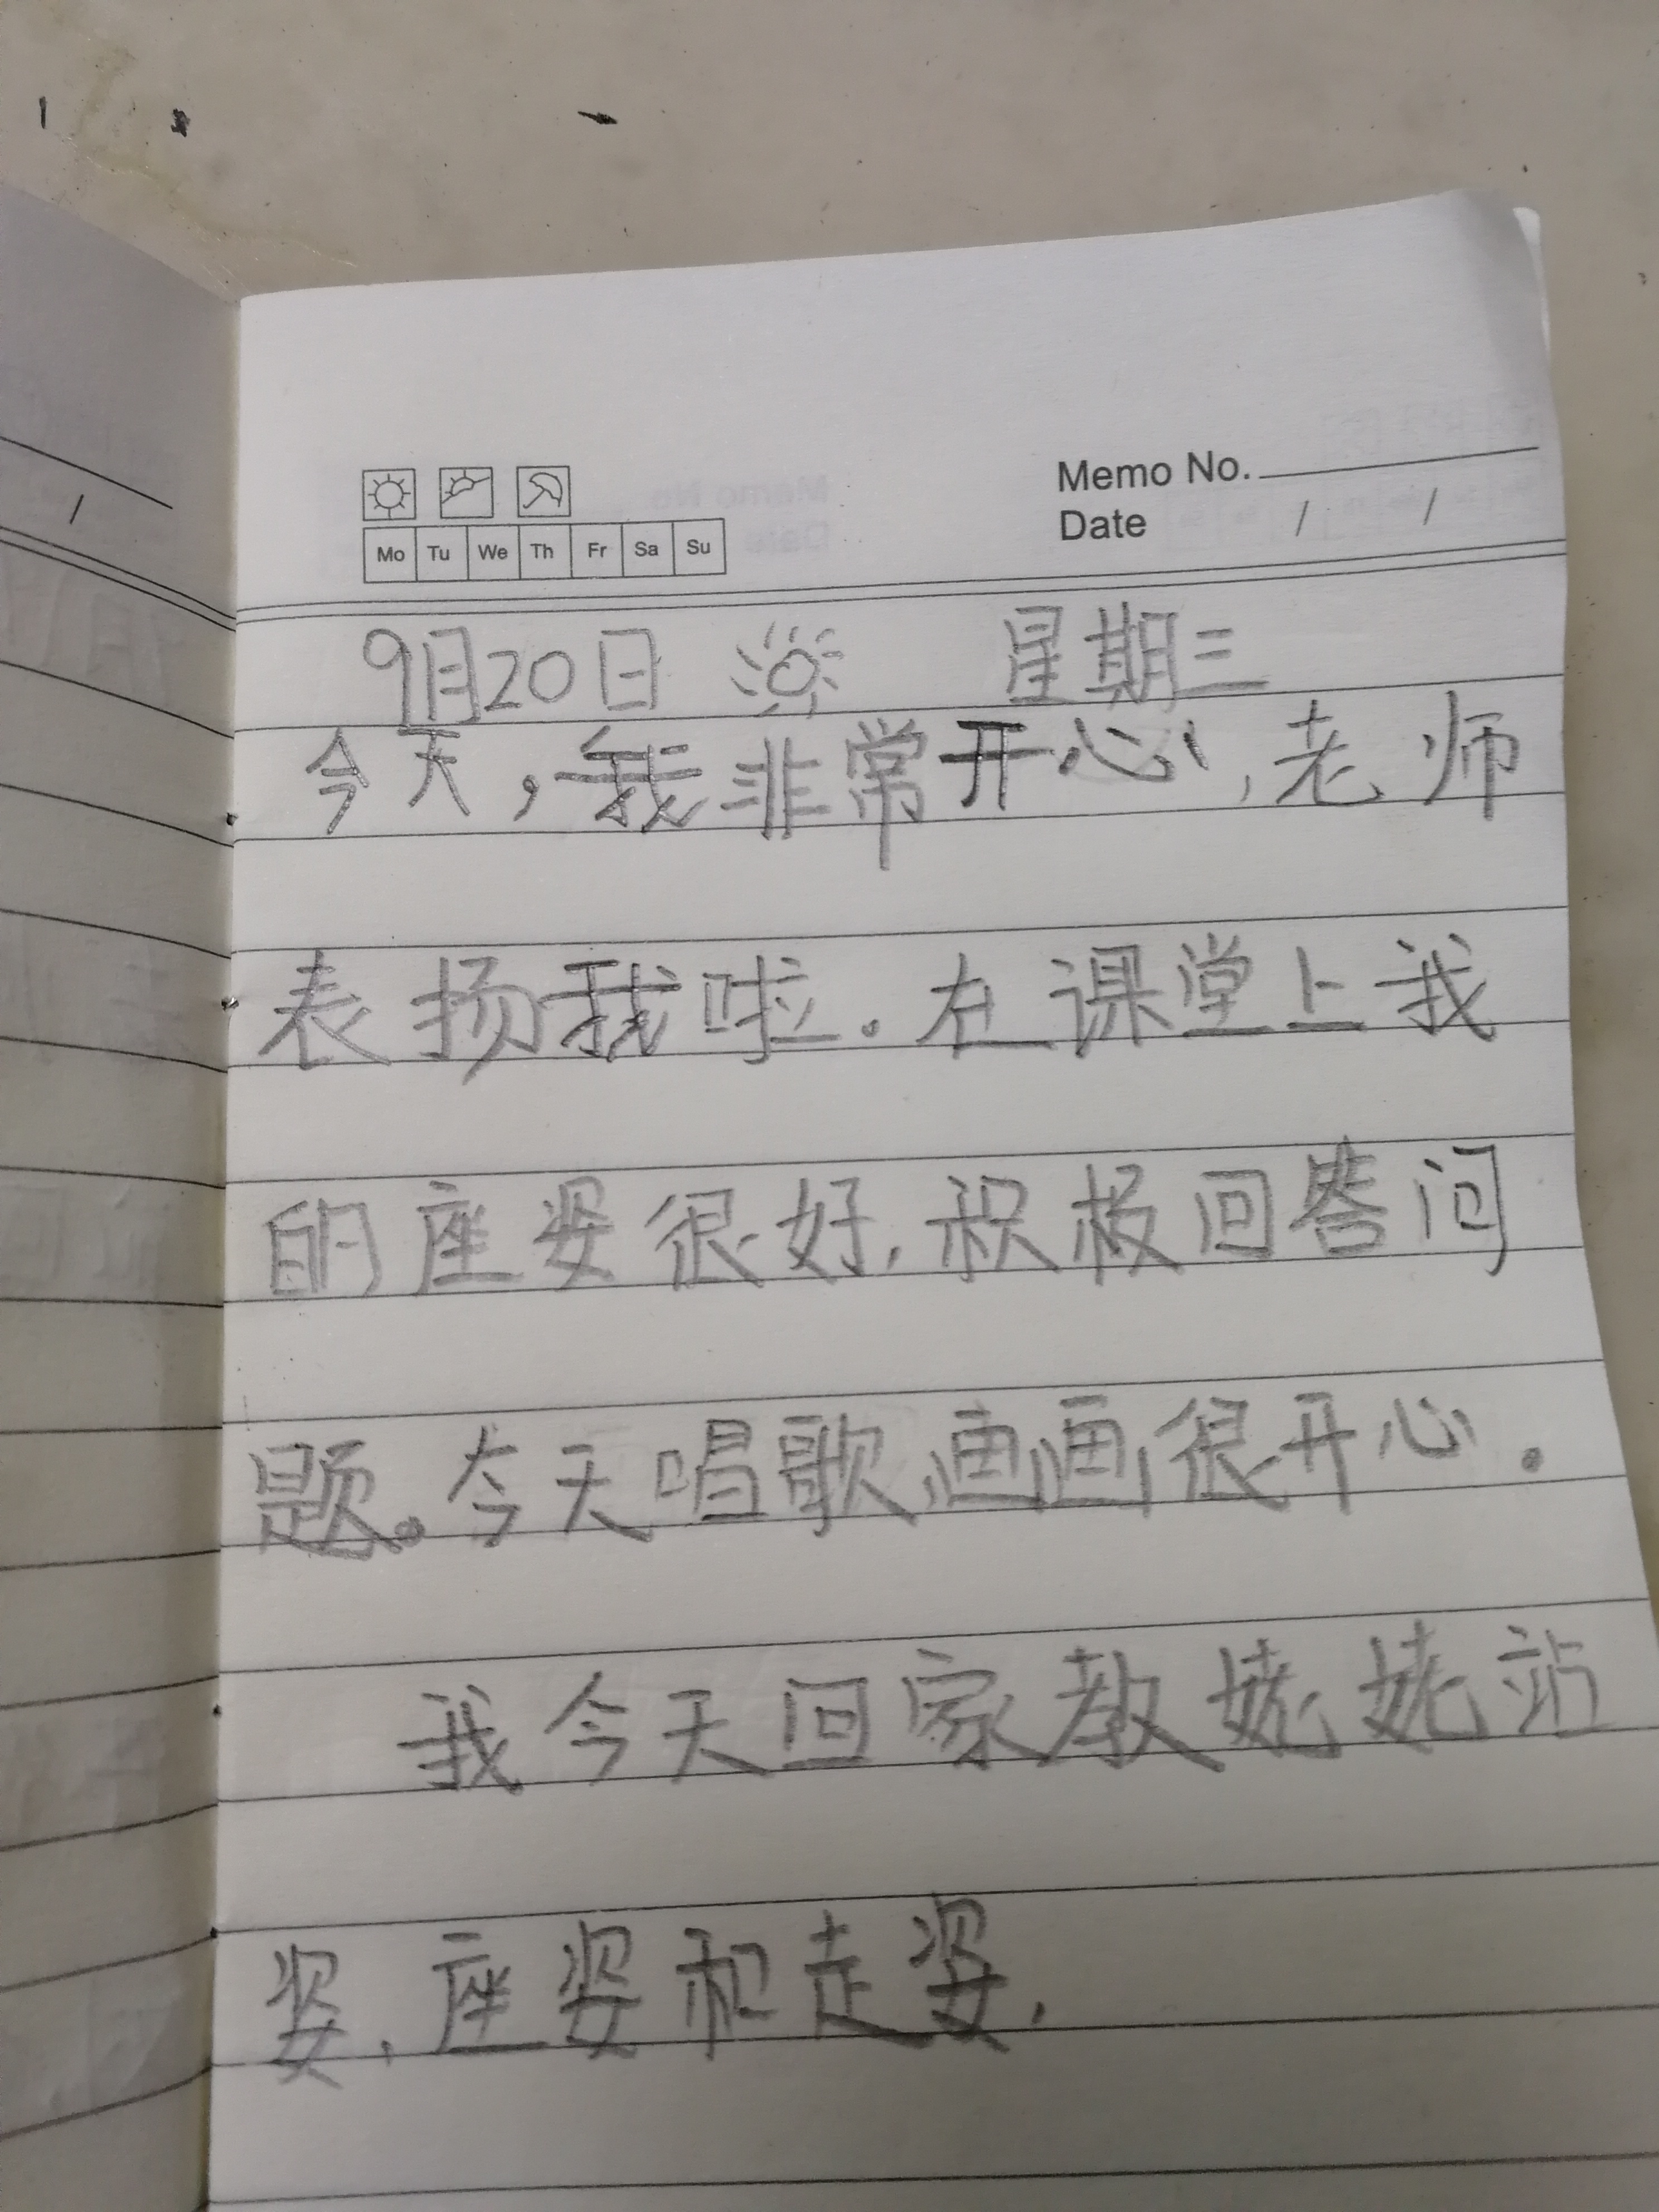 Memo No.
Date / /
Mo Tu We Th Fr Sa Su
/
9月20日 星期三
今天，我非常开心，老师
表扬我啦。在课堂上我
的座姿很好，积极回答问
题。今天唱歌画画很开心。
我今天回家教姥姥站
姿，座姿和走姿，